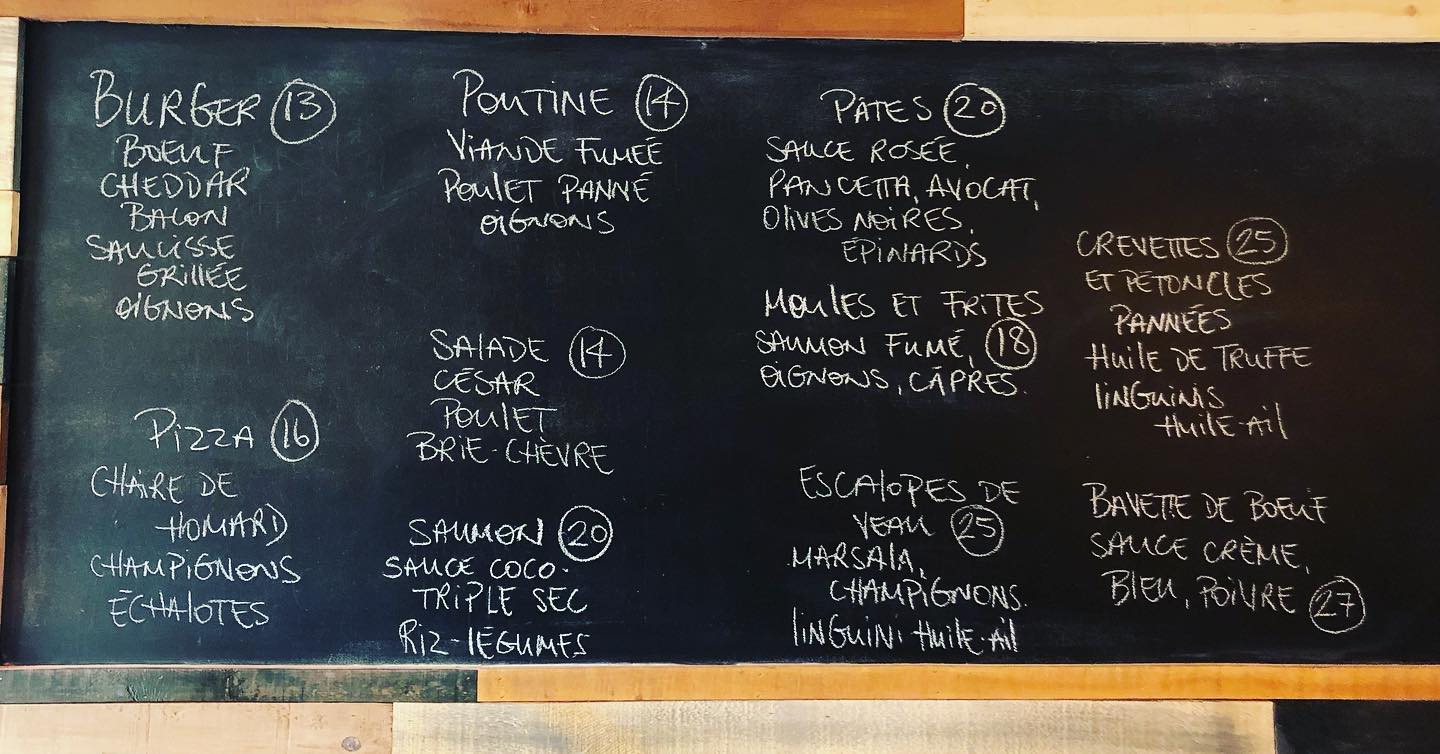 BURGER 13
BOEUF
CHEDDAR
BACON
SAUCISSE
GRILLÉE
OIGNONS
PIZZA 16
CHAIRE DE
HOMARD
CHAMPIGNONS
ÉCHALOTES
POUTINE 14
VIANDE FUMEÉ
POULET PANNÉ
OIGNONS
SALADE 14
CÉSAR
POULET
BRIE-CHÈVRE
SAUMON 20
SAUCE COCO.
TRIPLE SEC
RIZ-LÉGUMES
PATES 20
SAUCE ROSÉE,
PANCETTA, AVOCAT,
OLIVES NOIRES,
ÉPINARDS
MOULES ET FRITES
SAUMON FUMÉ, 18
OIGNONS, CÂPRES.
ESCALOPES DE
VEAU 25
MARSALA,
CHAMPIGNONS.
LINGUINI HUILE-AIL
CREVETTES 25
ET PÉTONCLES
PANNÉES
HUILE DE TRUFFE
LINGUINIS
HUILE-AIL
BAVETTE DE BOEUF
SAUCE CRÈME,
BLEU, POIVRE 27